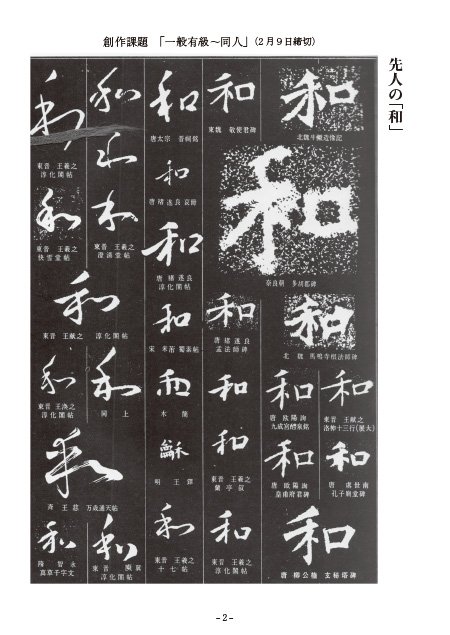 創作課題 「一般有級～同人」(2月9日締切)
先人の「和」
和
北魏牛橛造像記
和
奈良朝 多胡郡碑
和
北魏 馬鳴寺根法師碑
和
東晋 王献之
洛神十三行(拡大)
和
唐 欧陽詢
九成宮醴泉銘
和
唐 虞世南
孔子廟堂碑
和
唐 欧陽詢
皇甫府君碑
和
唐 柳公権 玄秘塔碑
和
東魏 敬使君碑
和
唐 褚遂良
孟法師碑
和
和
東晋 王羲之
蘭亭叙
和
東晋 王羲之
淳化閣帖
和
唐太宗 晋祠銘
和
唐 褚遂良 哀冊
和
唐 褚遂良
淳化閣帖
和
宋 米芾 蜀素帖
和
木簡
龢
明 王鐸
和
東晋 王羲之
十七帖
和
和
和
東晋 王羲之
澄清堂帖
和
東晋 王羲之
淳化閣帖
和
東晋 王羲之
快雪堂帖
和
東晋 王献之 淳化閣帖
和
同上
和
東晋 王渙之
淳化閣帖
和
斉 王慈 万歳通天帖
和
東晋
淳化閣帖
和
隋 智永
真草千字文
-2-